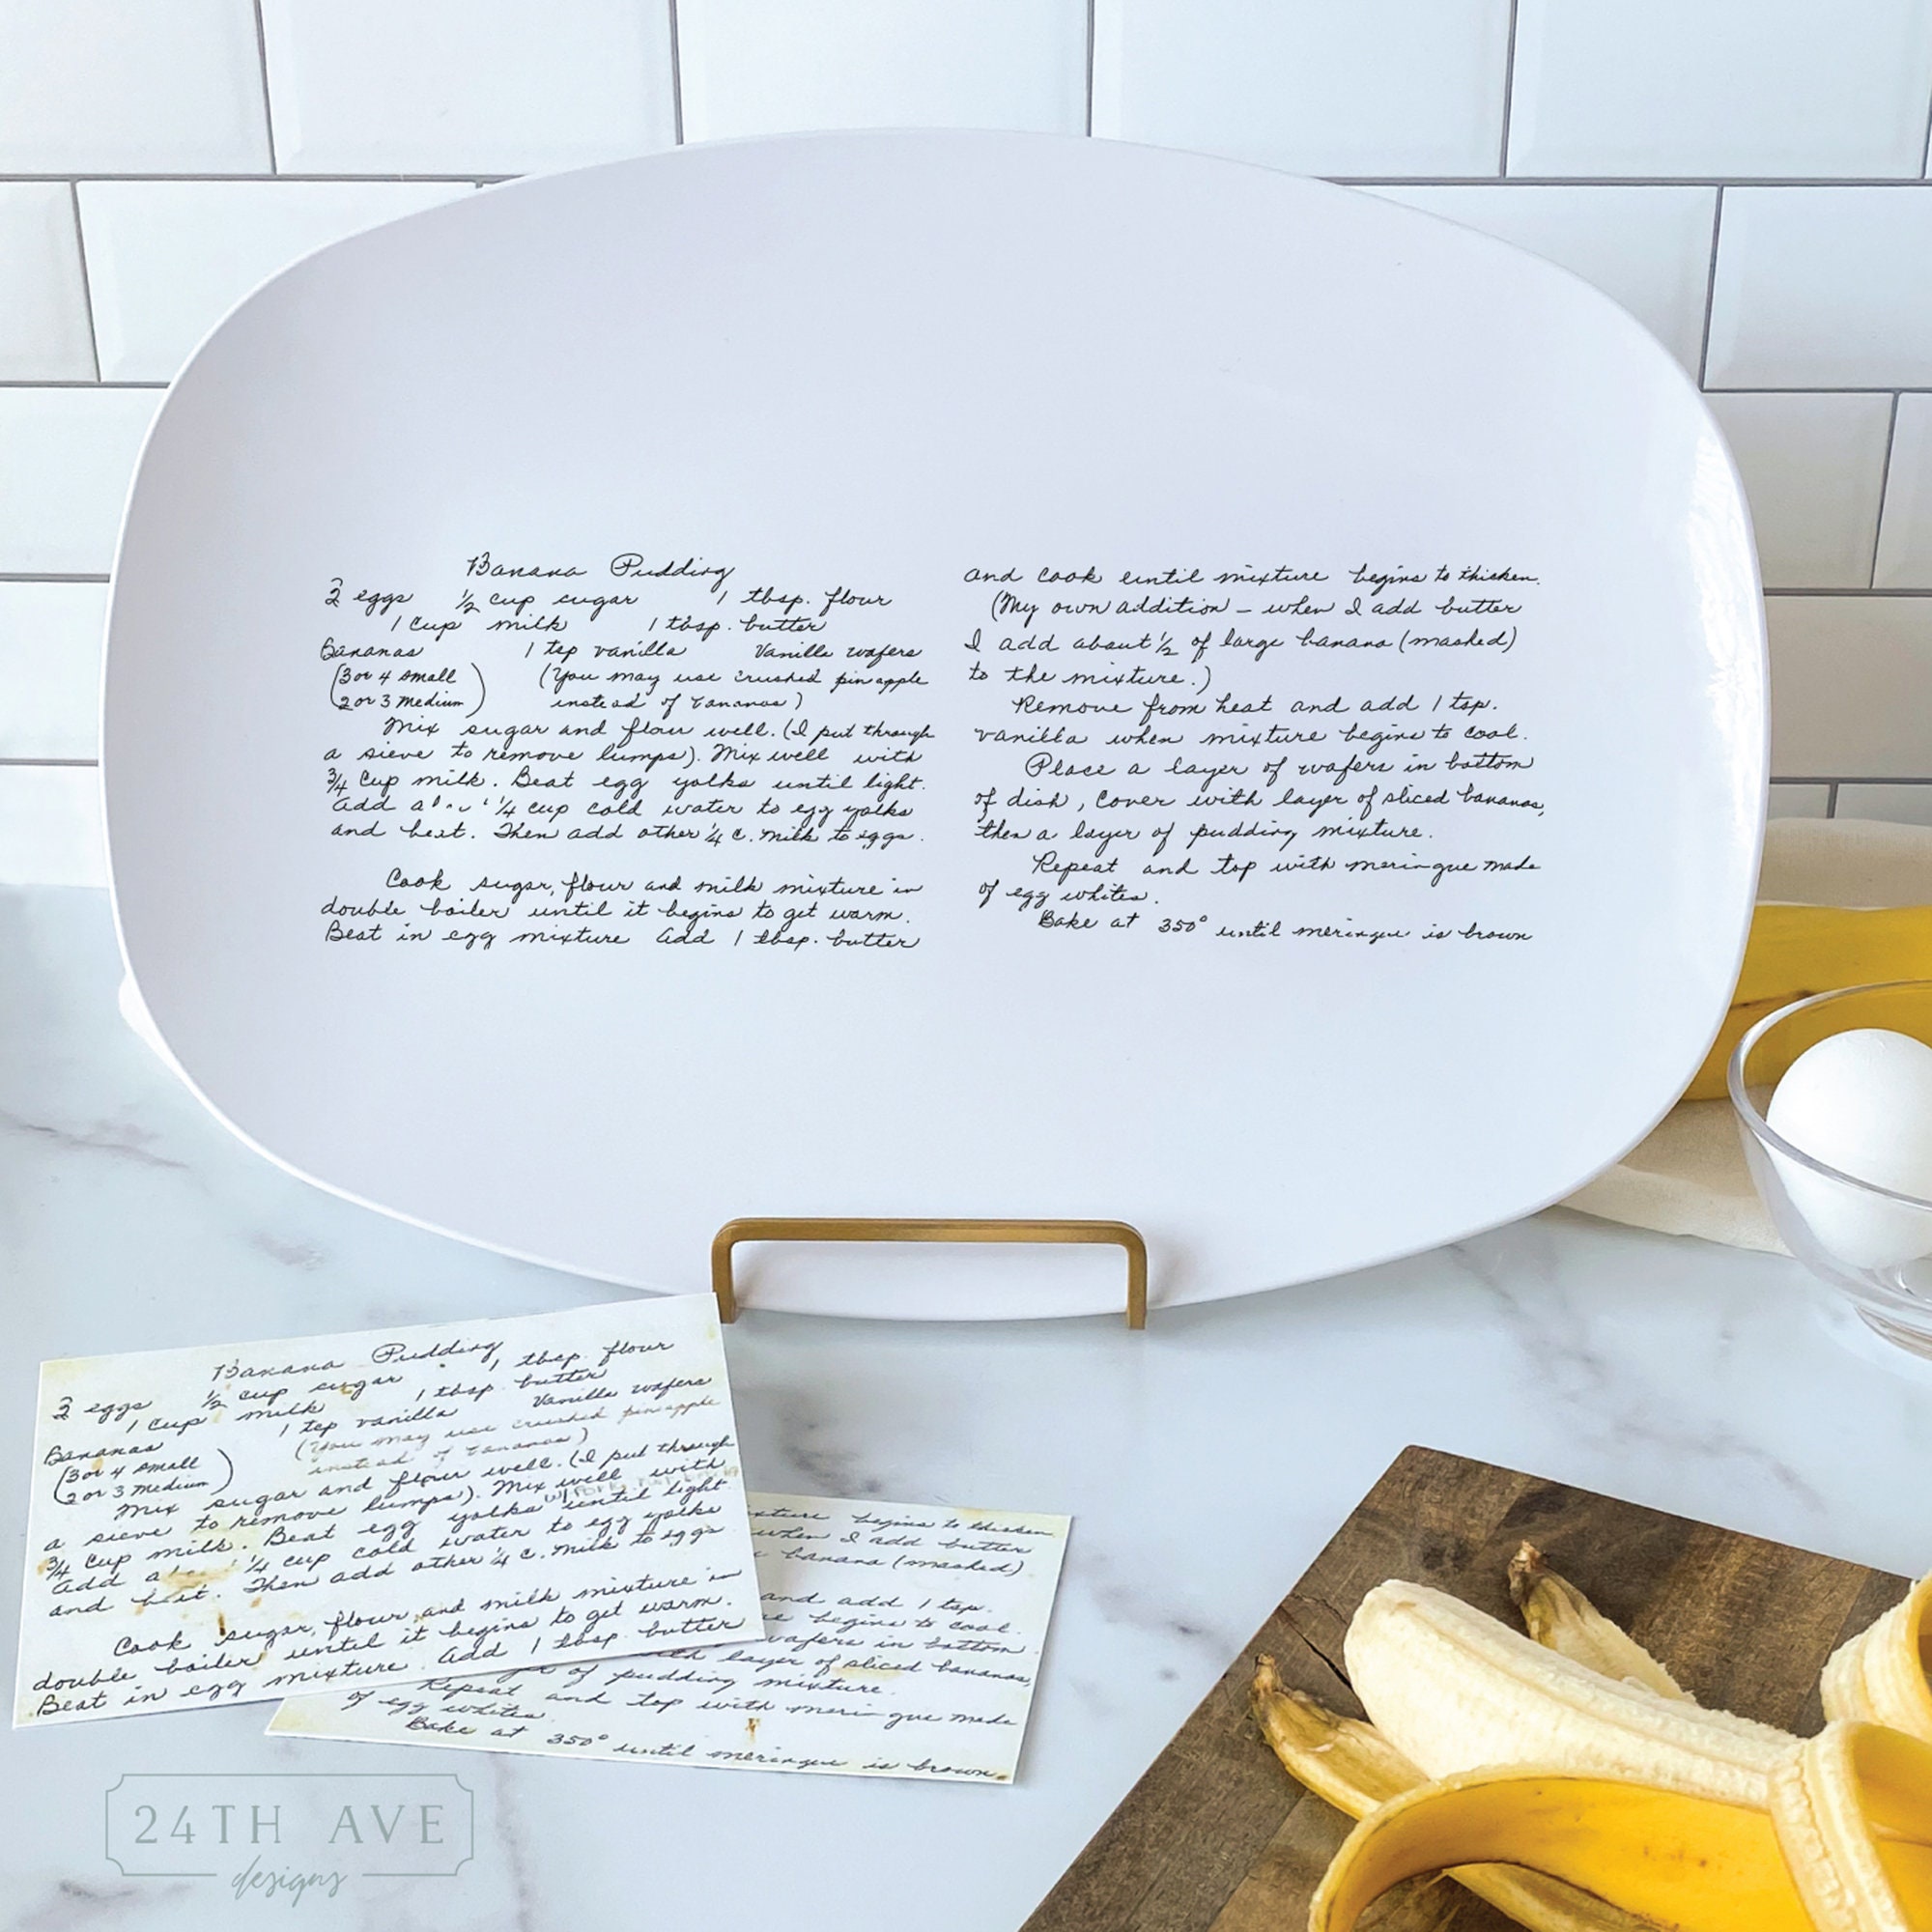 Banana Pudding
2 eggs ½ cup sugar 1 tbsp. flour
1 cup milk 1 tbsp. butter
Bananas 1 tsp vanilla Vanilla wafers
(3 or 4 small (You may use crushed pineapple
2 or 3 medium) instead of bananas)
Mix sugar and flour well. (I put through
a sieve to remove lumps). Mix well with
¾ cup milk. Beat egg yolks until light.
Add ¼ cup cold water to egg yolks
and beat. Then add other ¼ c. milk to eggs.
Cook sugar, flour and milk mixture in
double boiler until it begins to get warm.
Beat in egg mixture Add 1 tbsp. butter
and cook until mixture begins to thicken.
(My own addition - when I add butter
I add about ½ of large banana (mashed)
to the mixture.)
Remove from heat and add 1 tsp.
vanilla when mixture begins to cool.
Place a layer of wafers in bottom
of dish, cover with layer of sliced bananas,
then a layer of pudding mixture.
Repeat and top with meringue made
of egg whites.
Bake at 350° until meringue is brown
Banana Pudding
2 eggs ½ cup sugar 1 tbsp. flour
1 cup milk 1 tbsp. butter
Bananas 1 tsp vanilla Vanilla wafers
(3 or 4 small (You may use crushed pineapple
2 or 3 medium) instead of bananas)
Mix sugar and flour well. (I put through
a sieve to remove lumps). Mix well with
¾ cup milk. Beat egg yolks until light.
Add ¼ cup cold water to egg yolks
and beat. Then add other ¼ c. milk to eggs
Cook sugar, flour and milk mixture in
double boiler until it begins to get warm.
Beat in egg mixture. Add 1 tbsp butter
begins to thicken
when I add butter
banana (mashed)
and add 1 tsp.
begins to cool.
wafers in bottom
layer of sliced bananas,
of pudding mixture.
Repeat and top with meringue made
of egg whites.
Bake at 350° until meringue is brown.
24TH AVE
designs